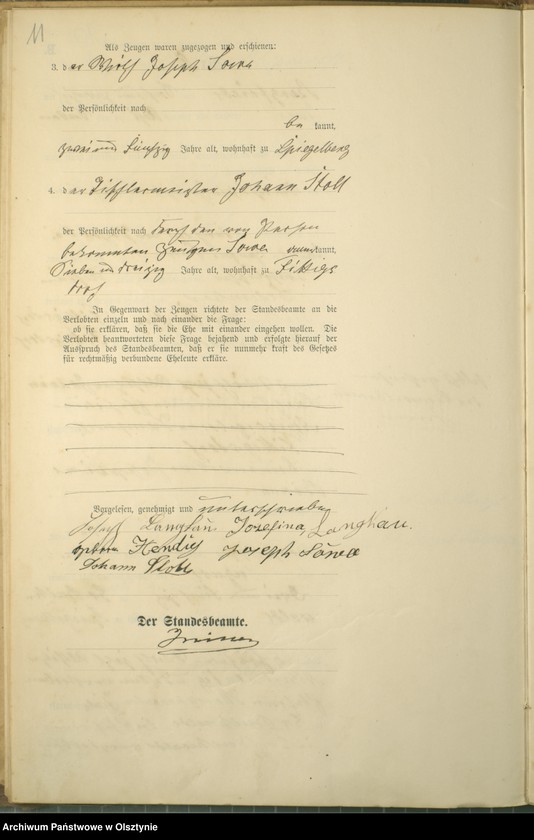 11
Als Zeugen waren zugezogen und erschienen:
3. der Wirth Joseph Sowa
der Persönlichkeit nach
be kannt,
zwei und fünfzig Jahre alt, wohnhaft zu Spiegelberg
4. der Tischlermeister Johann Stoll
der Persönlichkeit nach durch den von Person
bekannten Zeugen Sowa anerkannt,
Sieben und dreißig Jahre alt, wohnhaft zu Fittigs
dorf
In Gegenwart der Zeugen richtete der Standesbeamte an die
Verlobten einzeln und nach einander die Frage:
ob sie erklären, daß sie die Ehe mit einander eingehen wollen. Die
Verlobten beantworteten diese Frage bejahend und erfolgte hierauf der
Ausspruch des Standesbeamten, daß er sie nunmehr kraft des Gesetzes
für rechtmäßig verbundene Eheleute erkläre.
Vorgelesen, genehmigt und unterschrieben
Josef Langhau. Jozefina, Langhau.
geboren Joseph Sowa
Johann Stoll
Der Standesbeamte.
Archiwum Państwowe w Olsztynie